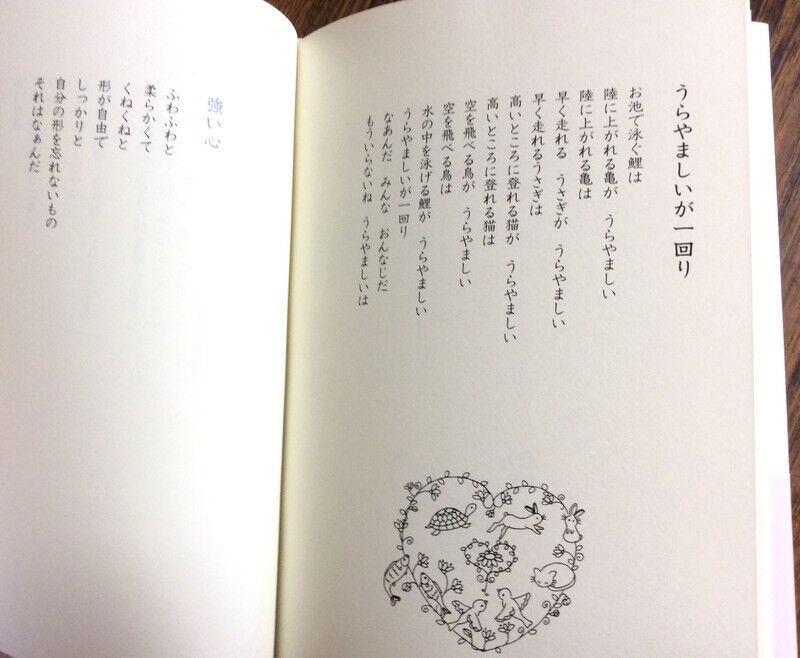 うらやましいが一回り
お池で泳ぐ鯉は
陸に上がれる亀が　うらやましい
陸に上がれる亀は
早く走れる　うさぎが　うらやましい
早く走れるうさぎは
高いところに登れる猫が　うらやましい
高いところに登れる猫は
空を飛べる鳥が　うらやましい
空を飛べる鳥は
水の中を泳げる鯉が　うらやましい
うらやましいが一回り
なあんだ　みんな　おんなじだ
もういらないね　うらやましいは
強い心
ふわふわと
柔らかくて
くねくねと
形が自由で
しっかりと
自分の形を忘れないもの
それはなぁんだ